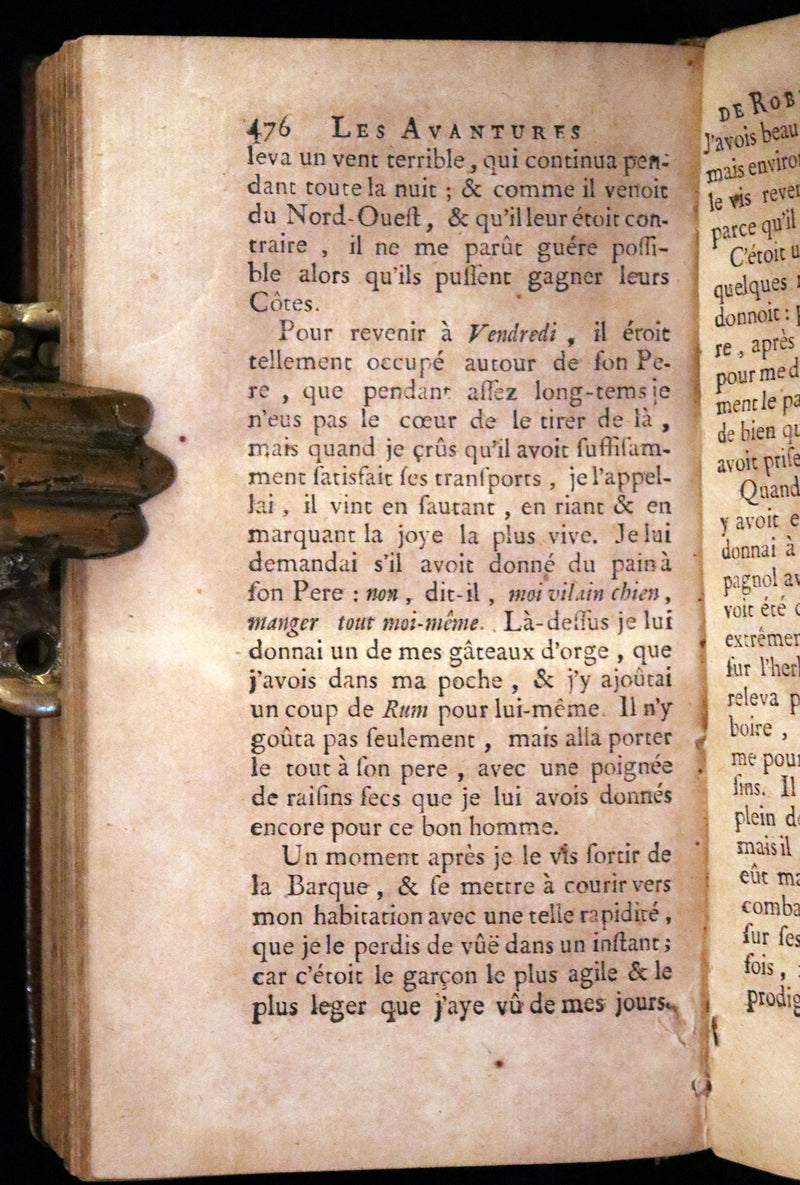 476 LES AVANTURES
leva un vent terrible, qui continua pen-
dant toute la nuit ; & comme il venoit
du Nord-Oueſt, & qu'il leur étoit con-
traire , il ne me parût guére poſſi-
ble alors qu'ils puſſent gagner leurs
Côtes.
Pour revenir à Vendredi , il étoit
tellement occupé autour de ſon Pe-
re , que pendant aſſez long-tems je
n'eus pas le cœur de le tirer de là ,
mais quand je çrûs qu'il avoit ſuffiſam-
ment ſatisfait ſes tranſports , je l'appel-
lai , il vint en ſautant , en riant & en
marquant la joye la plus vive. Je lui
demandai s'il avoit donné du pain à
ſon Pere : non , dit-il , moi vilain chien ,
manger tout moi-même. Là-deſſus je lui
donnai un de mes gâteaux d'orge , que
j'avois dans ma poche , & j'y ajoûtai
un coup de Rum pour lui-même. Il n'y
goûta pas ſeulement , mais alla porter
le tout à ſon pere , avec une poignée
de raiſins ſecs que je lui avois donnés
encore pour ce bon homme.
Un moment après je le vis ſortir de
la Barque , & ſe mettre à courir vers
mon habitation avec une telle rapidité ,
que je le perdis de vûë dans un inſtant ;
car c'étoit le garçon le plus agile & le
plus leger que j'aye vû de mes jours.
DE ROB
J'avois beau
mais enviro
le vis reve
parce qu'il
C'étoit u
quelques
donnoit :
re , après
pour me d
ment le pa
de bien qu
avoit priſe
Quand
y avoit e
donnai à
pagnol av
voit été
extrémer
ſur l'herb
releva p
boire ,
me pour
ſins. Il
plein d
mais il
eût ma
comba
ſur ſes
fois ,
prodig